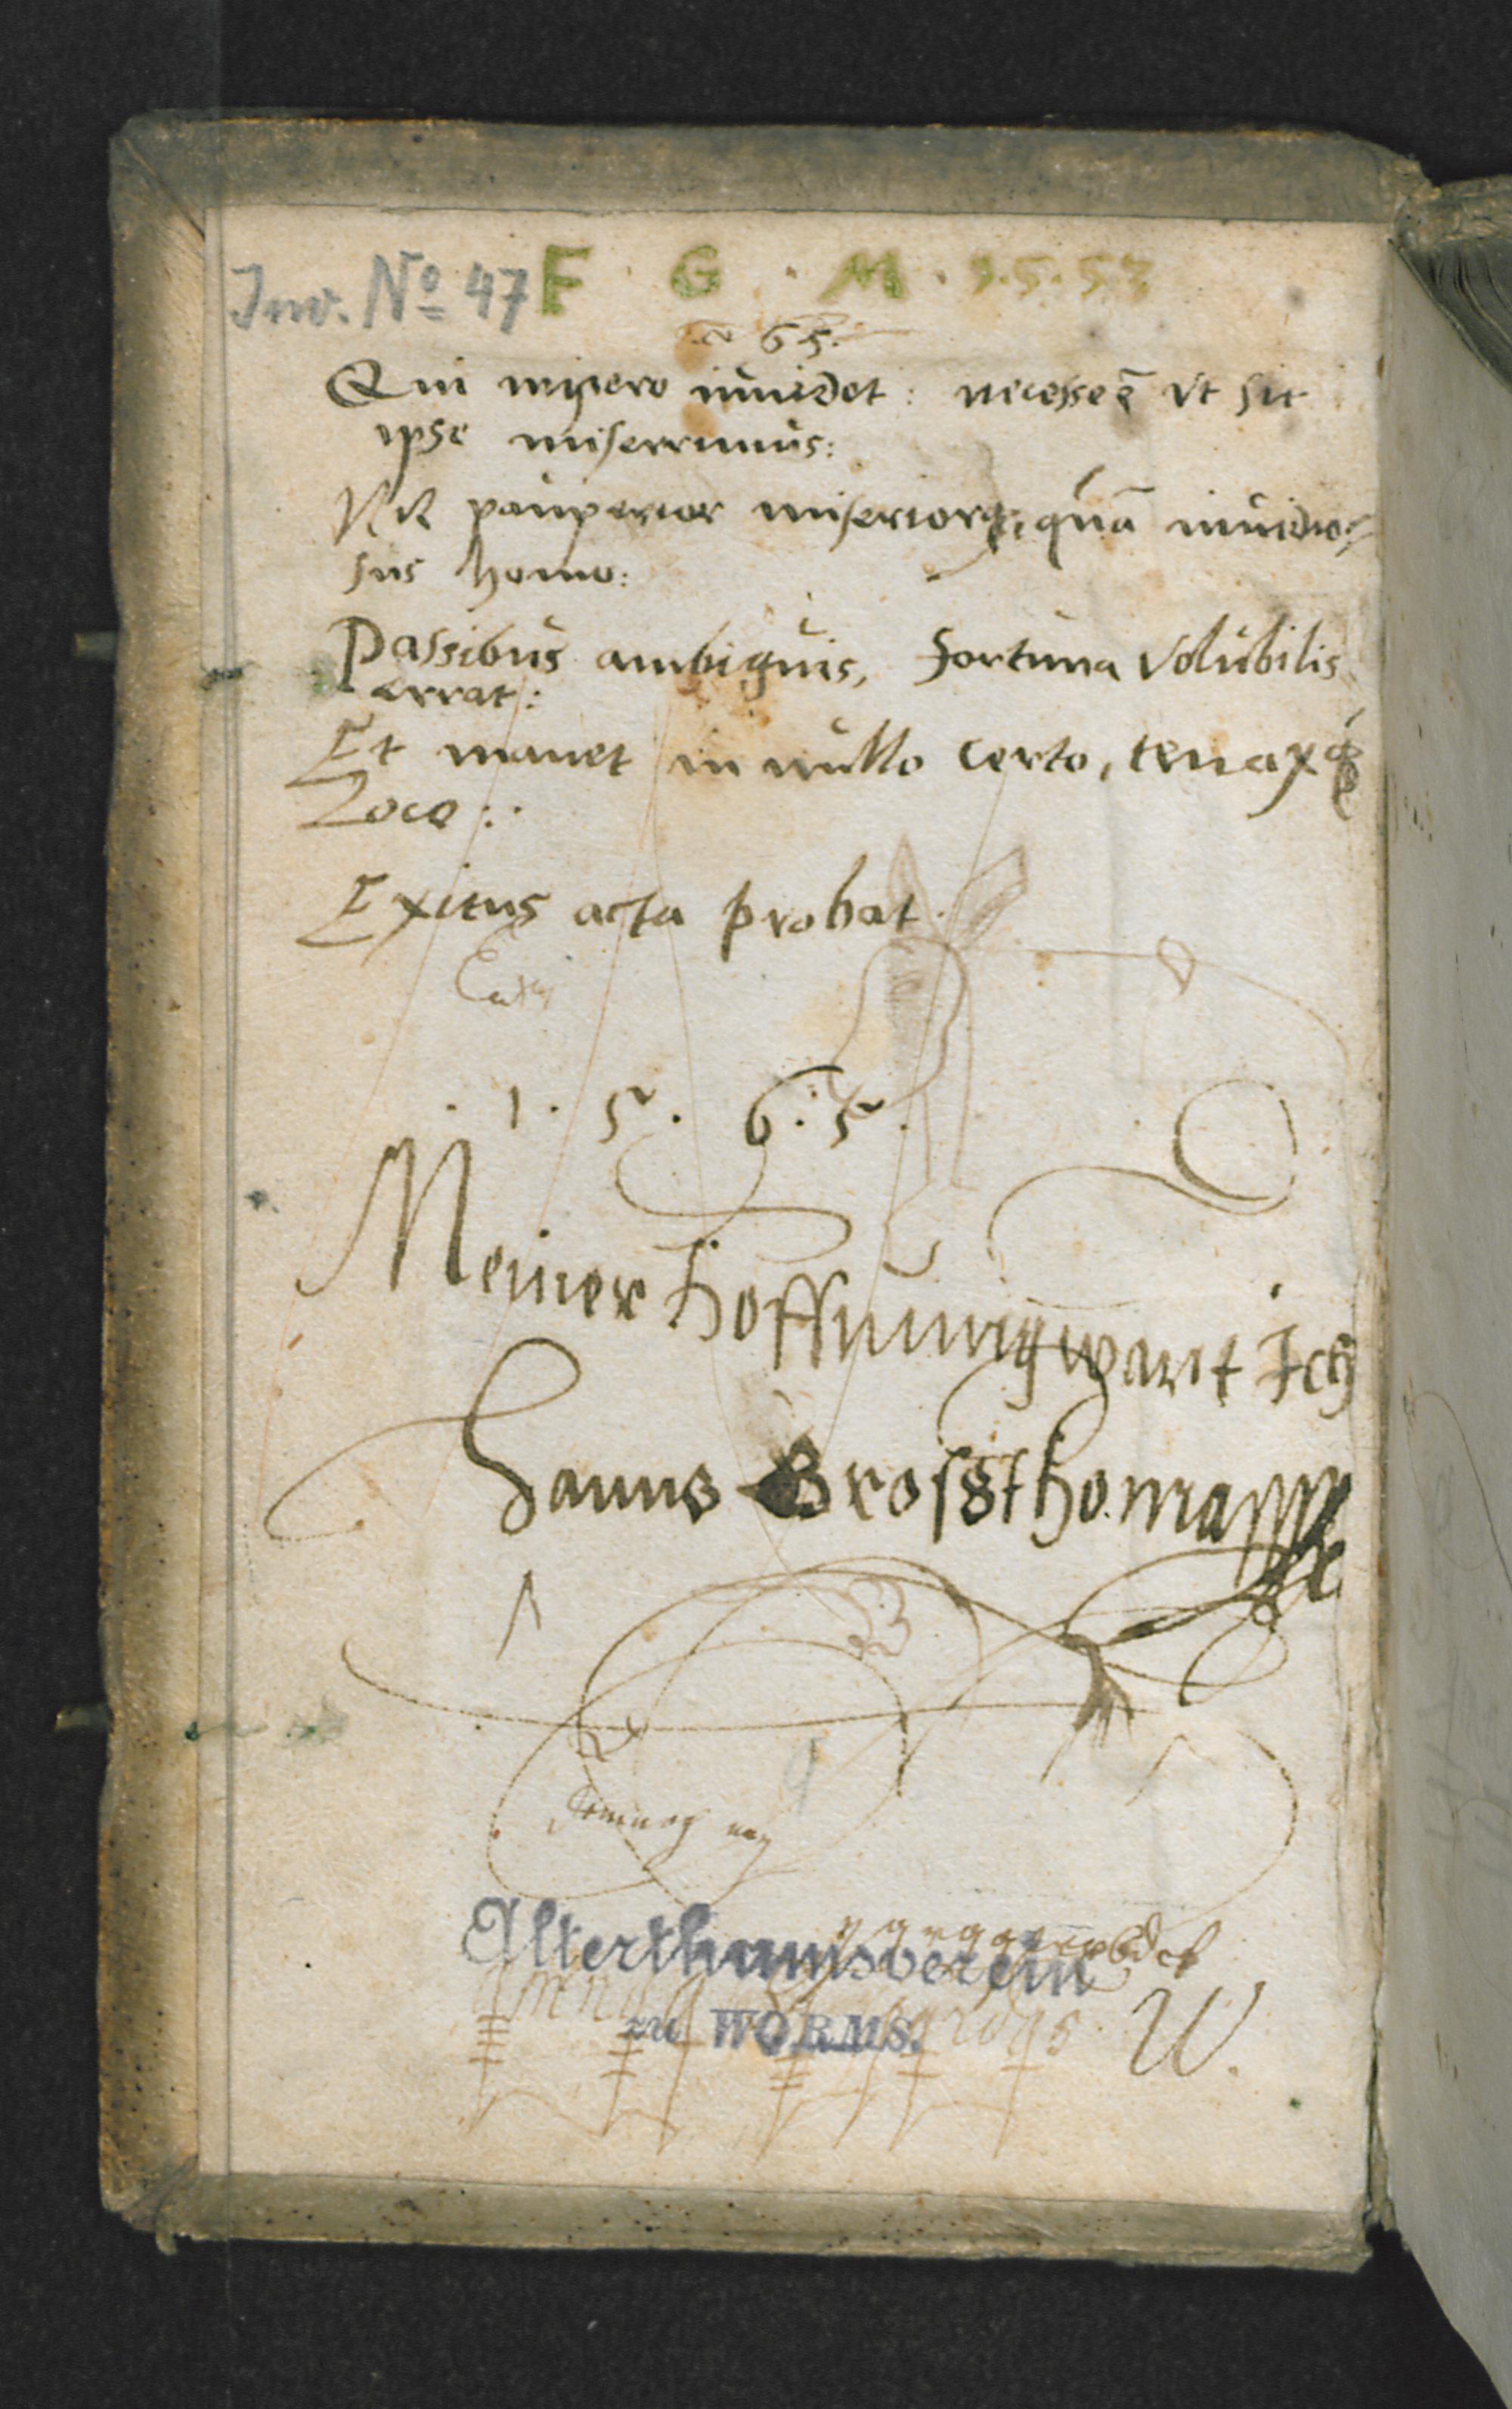 Inv. No 47 F . G . M .
65.
Qui misero inuidet: necesse ē vt sit
ipse miserrimus:
Nil pauperior miseriorq; quā inuidio⸗
sus homo:
Passibus ambiguis, fortuna volubilis
errat:
Et manet in nullo certo, tenaxq̃
Loco:.
Exitus acta probat.
. 1 . 5 . 6 . 5 .
Meiner hoffnung wart Ich
Hanns Grossthoman
Alterthumsverein
zu WORMS.
W.